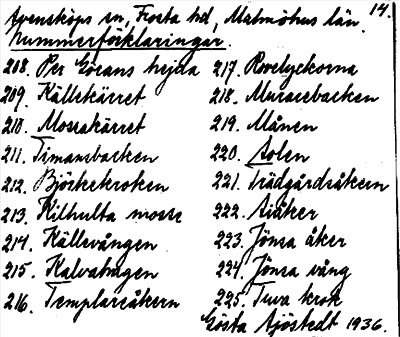 Svensköps sn, Frosta hd, Malmöhus län. 14.
Nummerförklaringar.
208. Per Görans hejda
209. Källekärret
210. Mosakärret
211. Timansbacken
212. Björkekroken
213. Kilhulta mosse
214. Källevången
215. Kalvahagen
216. Templareåkern
217. Rovelyckorna
218. Murarebacken
219. Månen
220. Solen
221. Trädgårdsåkern
222. Siåker
223. Jönsa åker
224. Jönsa vång
225. Tuva krok
Gösta Sjöstedt 1936.